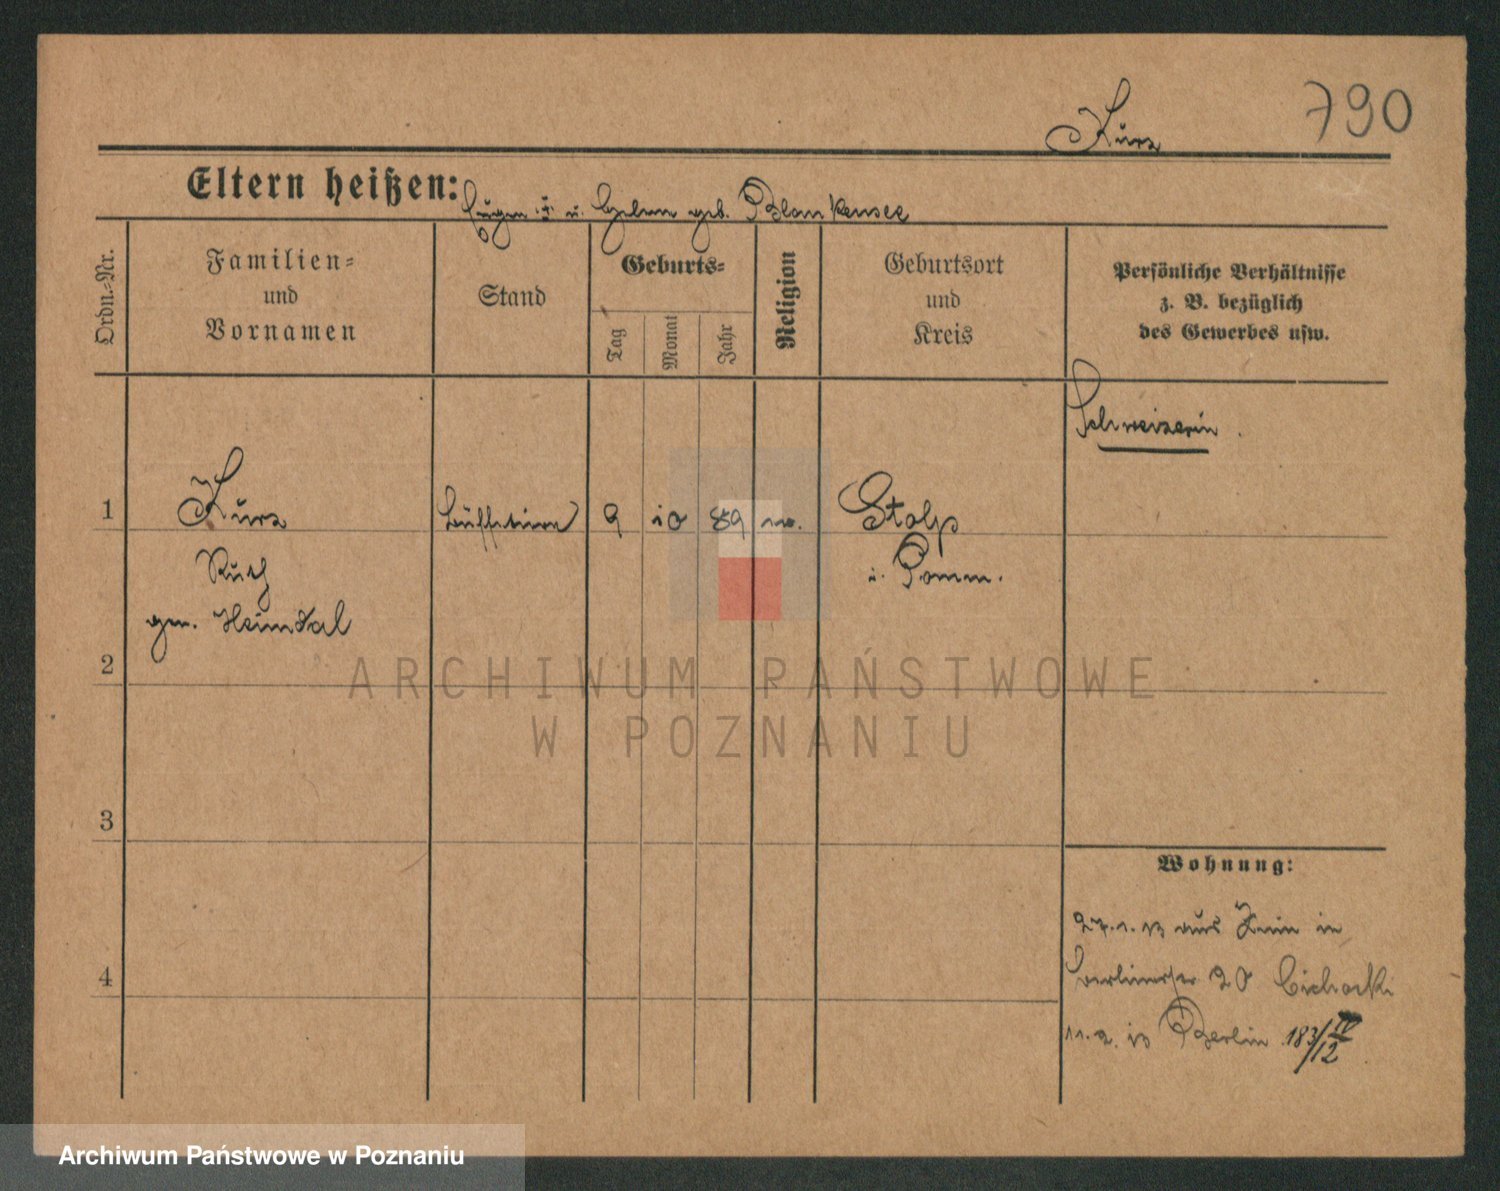 790
Kurz
Eltern heißen: Eugen u. Helene geb. Blankensee
Ordn.-Nr.
Familien-
und
Vornamen
Stand
Geburts-
Tag
Monat
Jahr
Religion
Geburtsort
und
Kreis
Persönliche Verhältnisse
z. B. bezüglich
des Gewerbes usw.
Schweizerin.
1 Kurz 9 10 89 Stolp
Ruth i. Pomm.
gen. Heimdal
2
3
4
Wohnung:
27.1.13 aus in
Berlinerstr 20 Cichocki
11.2.13 Berlin 183/IV 12
ARCHIWUM PAŃSTWOWE
W POZNANIU
Archiwum Państwowe w Poznaniu